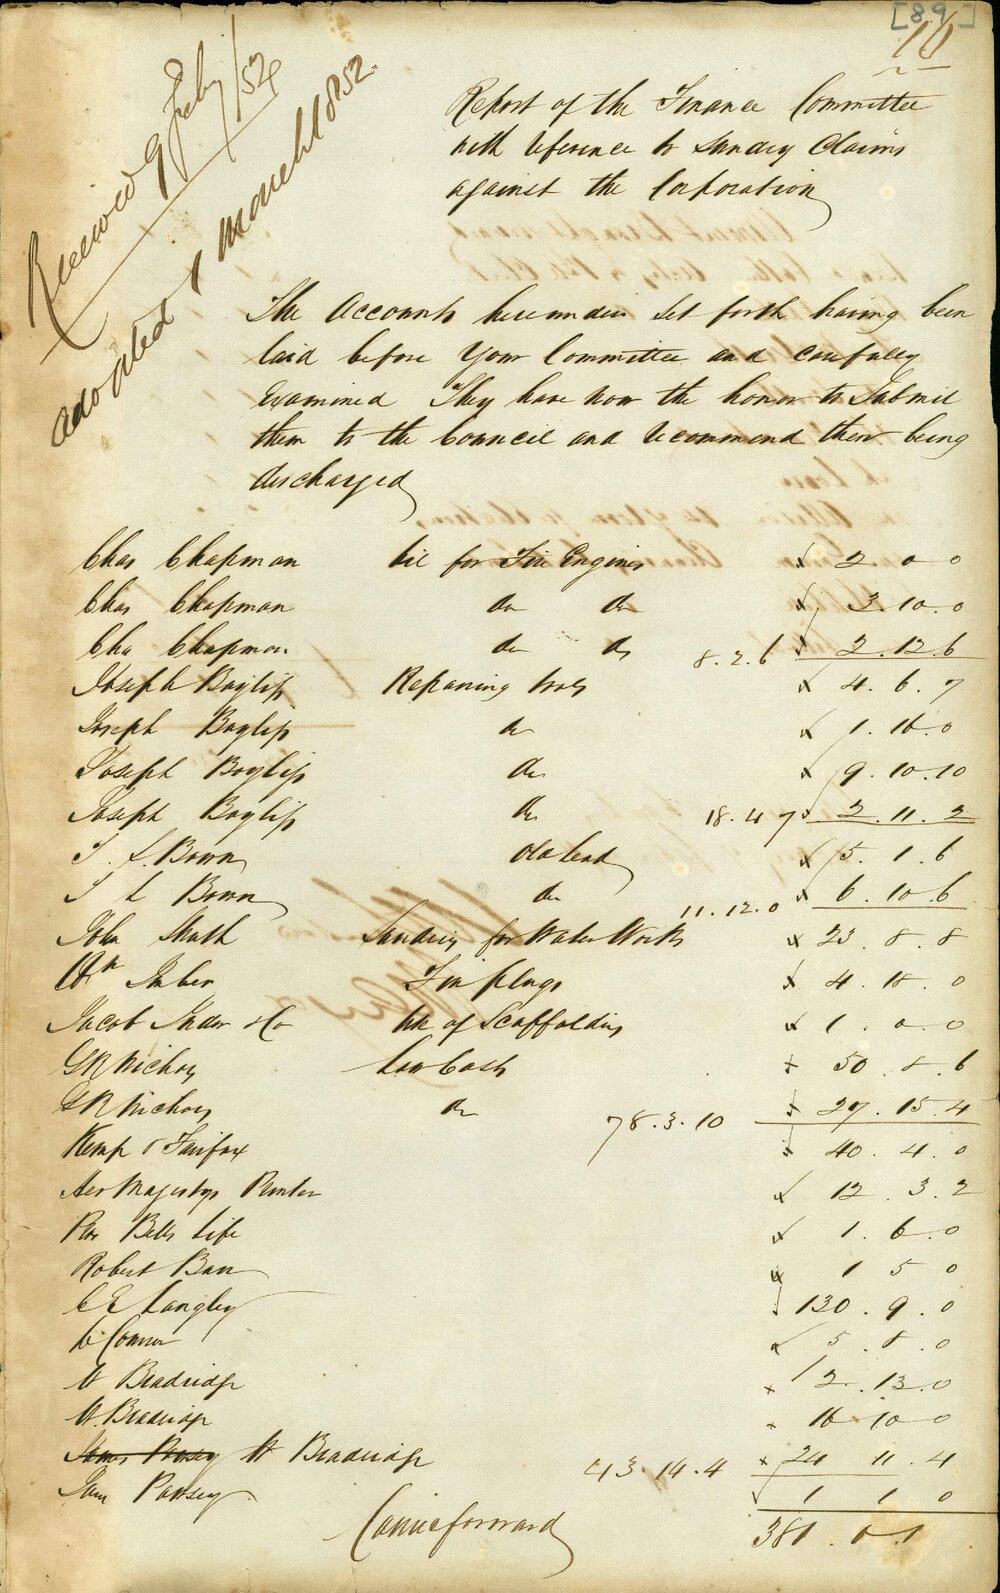 [89]
10
Received 9 Feby /52
adopted 1 March 1852.
Report of the Finance Committee
with reference to Sundry Claims
against the Corporation
The Accounts hereunder Set forth having been
laid before Your Committee and carefully
Examined They have now the honor to Submit
them to the Council and recommend their being
discharged
Chas Chapman Oil for Fire Engines 2 0 0
Chas Chapman do do 3.10.0
Cha Chapman do do 8.2.6 2.12.6
Joseph Bayliss Repairing tools 4.6.7
Joseph Bayliss do 1.16.0
Joseph Bayliss do 9.10.10
Joseph Bayliss do 18.4.7 2.11.2
T. L. Bown old lead 5.1.6
T L Bown do 11.12.0 6.10.6
John Struth Sundries for Water Works 23.8.8
Wm Fire plugs 4.18.0
Jacob & Co hire of Scaffolding 1.0.0
G R Nichols Law Costs 50.8.6
G R Nichols do 78.3.10 27.15.4
Kemp & Fairfax 40.4.0
Her Majestys Printer 12.3.2
Bells Life 1.6.0
Robert 1 5 0
C E Langley 130.9.0
Connor 5.8.0
W Bradridge 2.13.0
W. Bradridge 16 10 0
James Pawsey W Bradridge 43.14.4 24 11.4
Jam Pawsey 1 1 0
Carrie forward 381.0.1